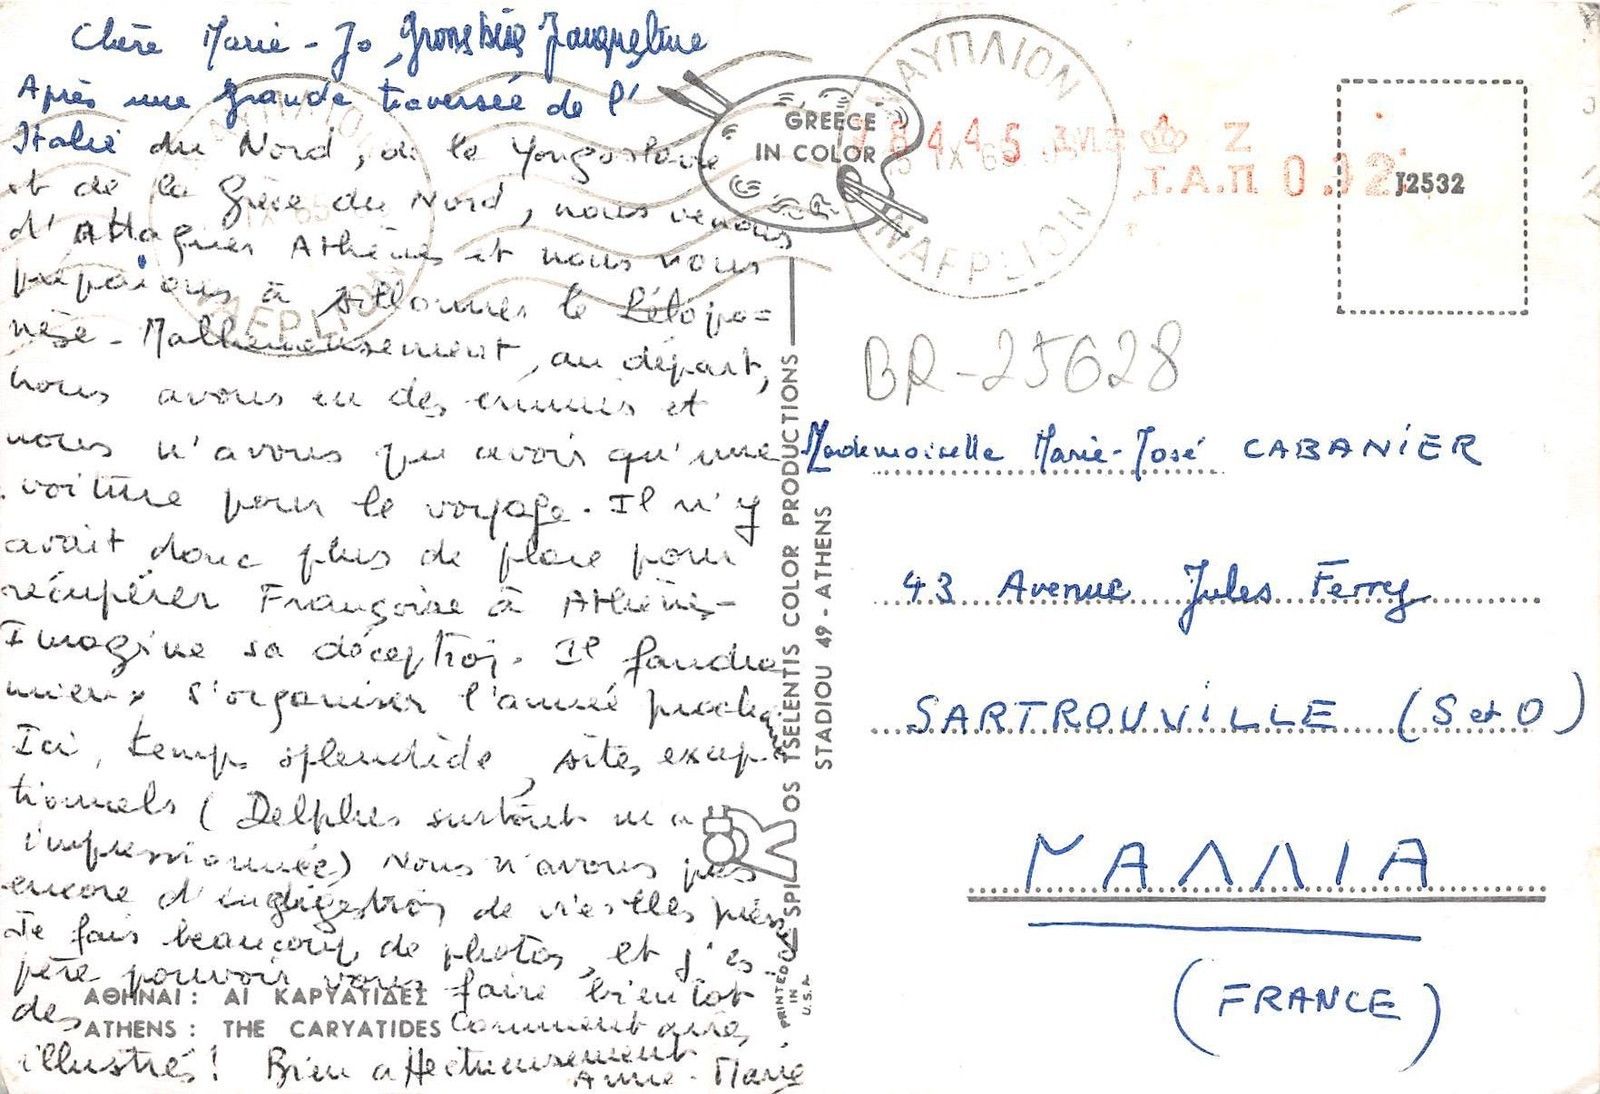 Chère Marie-Jo, Jacqueline
Après une grande traversée de l'
Italie du Nord, de la Yougoslavie
et de la Grèce du Nord, nous venons
d'Attaquer Athènes et nous nous
préparons à sillonner le Pélopo=
nèse. Malheureusement, au départ,
nous avons eu des ennuis et
nous n'avons pu avoir qu'une
voiture pour le voyage. Il n'y
avait donc plus de place pour
récupérer Françoise à Athènes-
Imagine sa déception. Il faudra
mieux s'organiser l'année prochaine
Ici, temps splendide, sites excep-
tionnels (Delphes surtout m'a
impressionnée) Nous n'avons pas
encore d'indigestion de vieilles pierres
Je fais beaucoup de photos, et j'es
père pouvoir vous faire bientôt
des commentaires
illustrés! Bien affectueusement
Anne-Marie
ΑΘΗΝΑΙ: ΑΙ ΚΑΡΥΑΤΙΔΕΣ
ATHENS: THE CARYATIDES
GREECE
IN COLOR
ΝΑΥΠΛΙΟΝ
NAFPLION
Τ.Α.Π.
J2532
BR-25628
SPYROS TSELENTIS COLOR PRODUCTIONS
STADIOU 49 - ATHENS
PRINTED
IN
U.S.A.
Mademoiselle Marie-José CABANIER
43 Avenue Jules Ferry
SARTROUVILLE (S et O)
ΓΑΛΛΙΑ
(FRANCE)